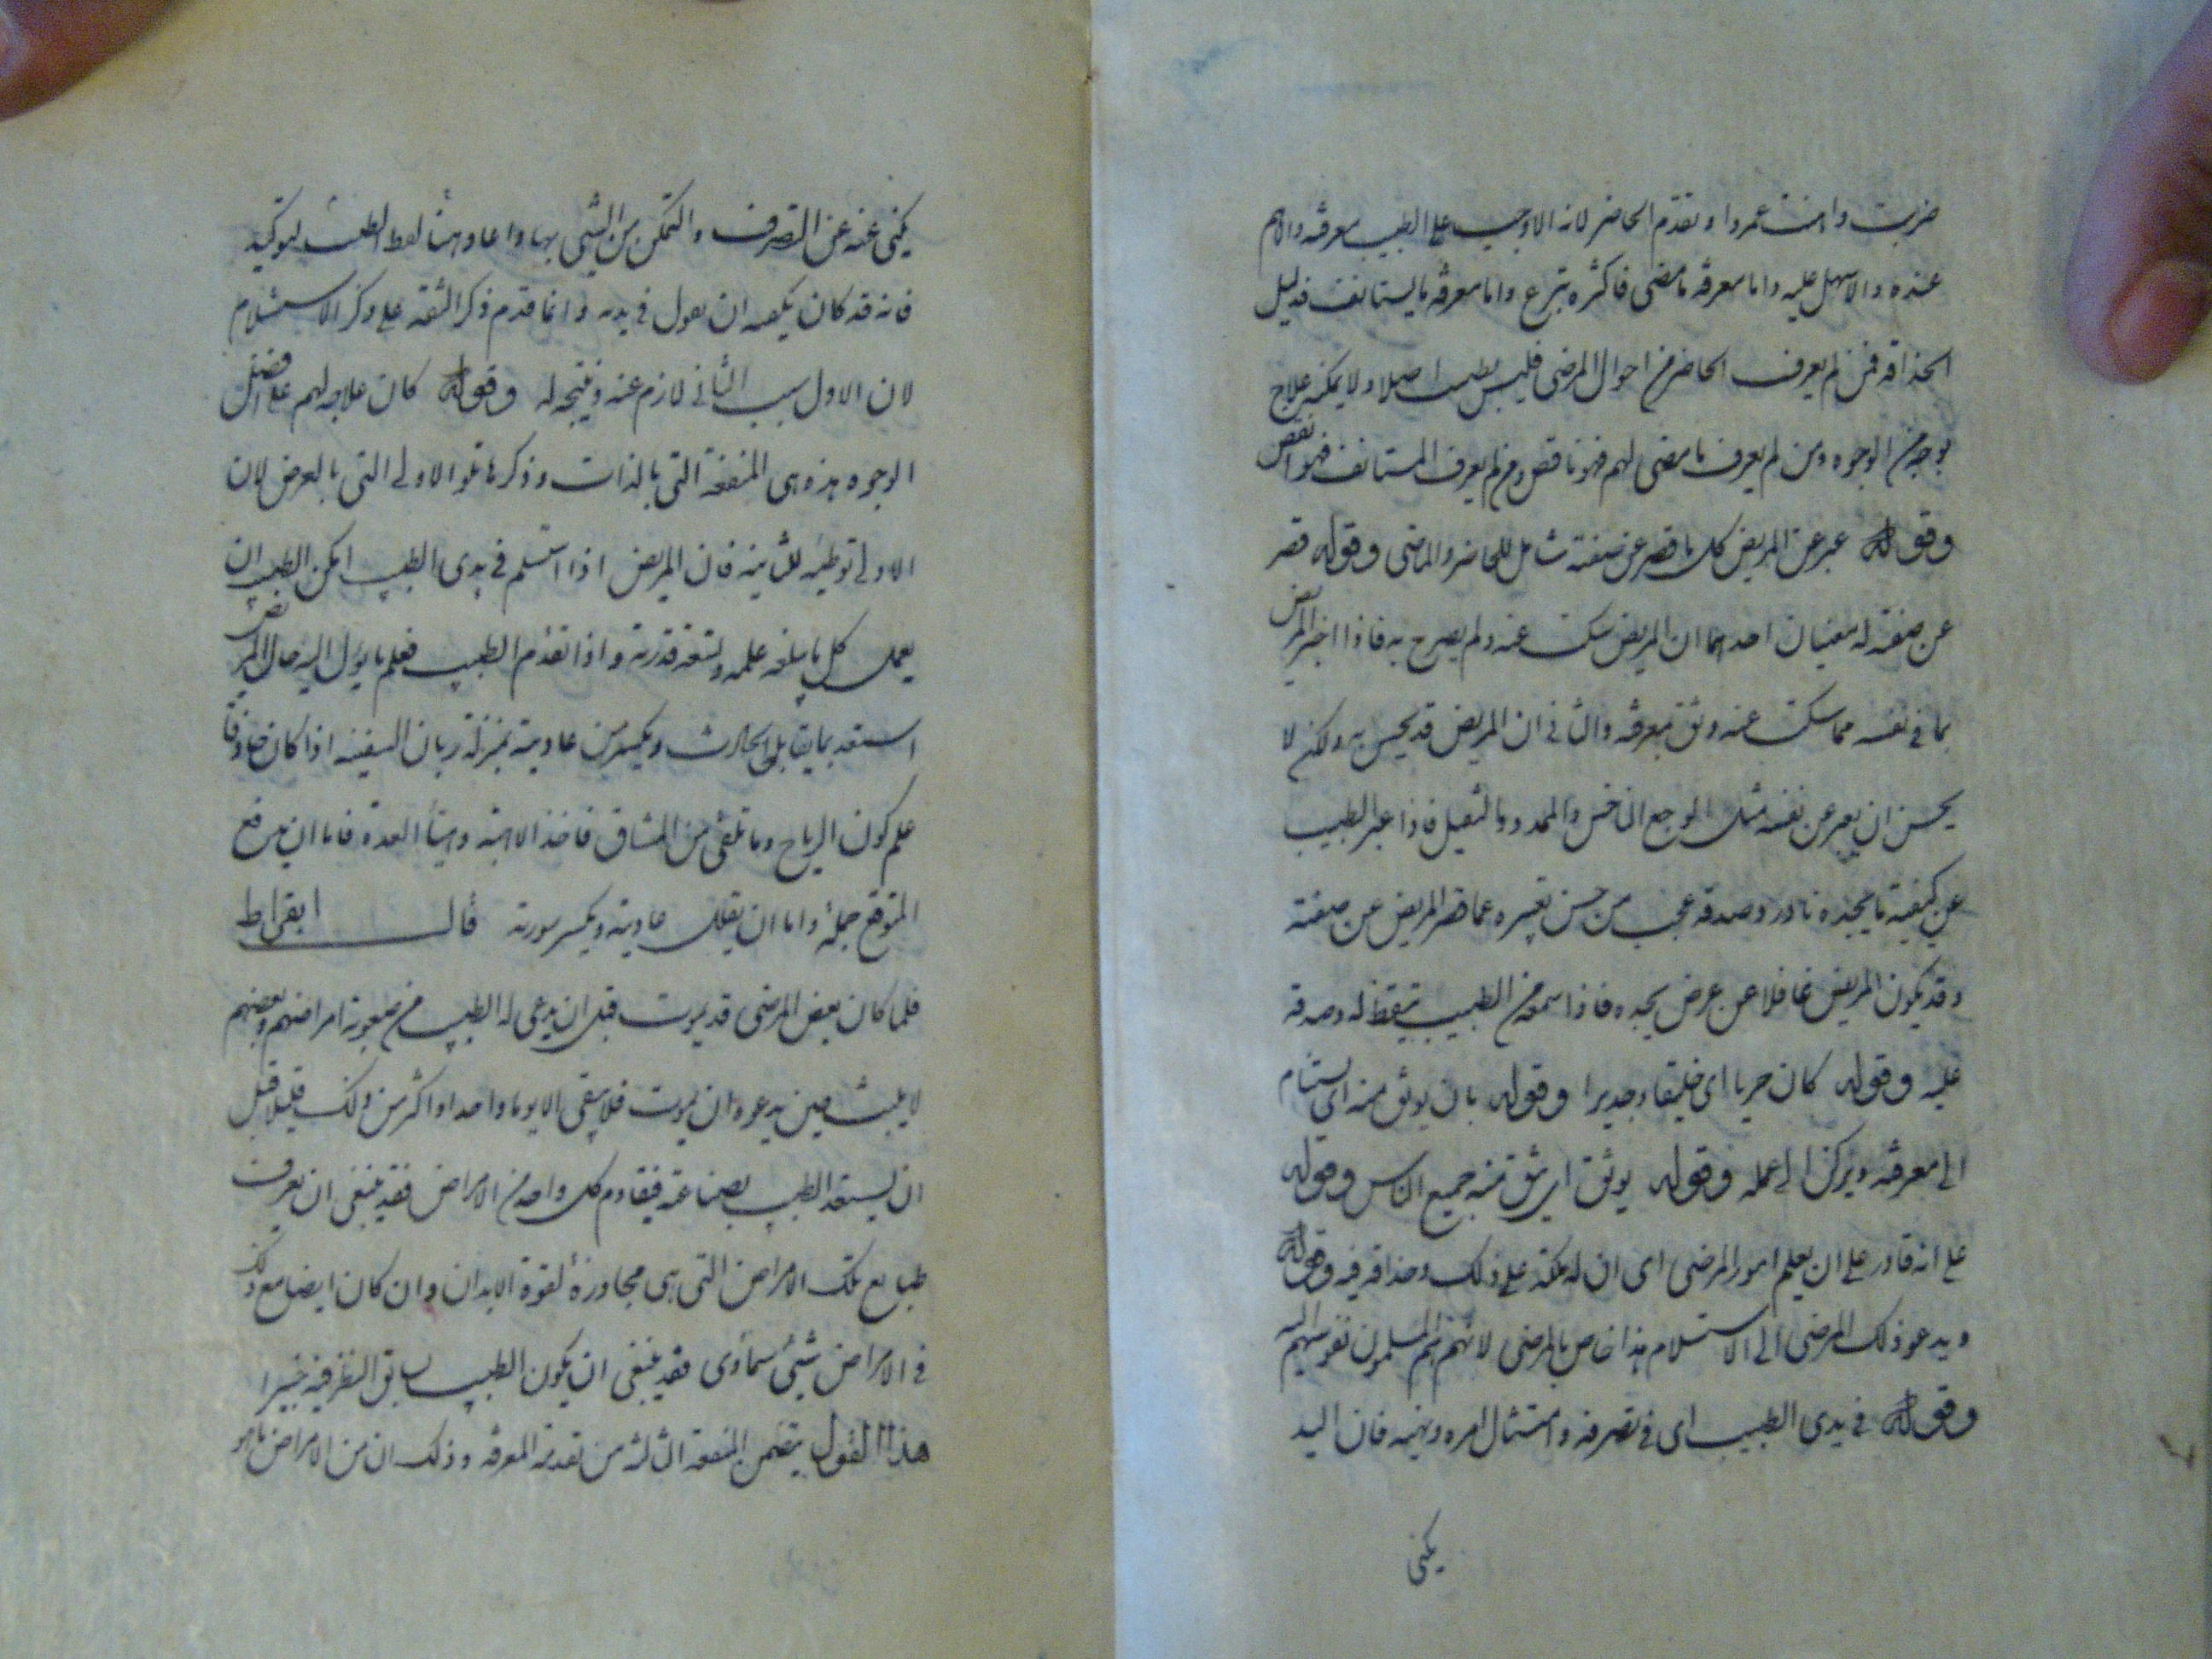 ضربت واهنت عمروا وتقدم الحاضر لانه الاوجب على الطبيب معرفته والاهم
عنده والاسهل عليه واما معرفة ما مضى فاكثره تبرع واما معرفة ما يستانف فدليل
الحذاقه فمن لم يعرف الحاضر من احوال المرضى فليس بطبيب اصلا ولا يمكنه علاج
بوجه من الوجوه ومن لم يعرف ما مضى لهم فهو ناقص ومن لم يعرف المستانف فهو انقص
وقوله عبر عن المريض كل ما قصر عن صفته شامل للحاضر والماضى وقوله قصر
عن صفته له معنيان احدهما ان المريض سكت عنه ولم يصرح به فاذا اخبر المريض
بما فى نفسه مما سكت عنه وثق بمعرفته والثانى ان المريض قد يحس به ولكنه لا
يحسن ان يعبر عن نفسه مثل الوجع الناخس والممدد والثقيل فاذا عبر الطبيب
عن كيفية ما يجده نادر وصدقه عجب من حسن تفسيره عما قصر المريض عن صفته
وقد يكون المريض غافلا عن عرض يجده فاذا سمعه من الطبيب تيقظ له وصدقه
عليه وقوله كان حريا اى خليقا وجديرا وقوله بان يوثق منه اى يستنام
الى معرفته ويركن الى عمله وقوله يوثق اى يثق منه جميع الناس وقوله
على انه قادر على ان يعلم امور المرضى اى ان له مكنة على ذلك وحذاقه فيه وقوله
ويدعو ذلك المرضى الى الاستسلام هذا خاص بالمرضى لانهم هم المسلمون نفوسهم اليه
وقوله فى يدى الطبيب اى فى تصرفه وامتثال امره ونهيه فان اليد
يكنى
يكنى عنه عن التصرف والتمكن من الشى بها واعاد هنا لفظ الطبيب لتوكيد
فانه قد كان يكفيه ان يقول فى يديه وانما قدم ذكر الثقة على ذكر الاستسلام
لان الاول سبب الثانى لازم عنه ونتيجه له وقوله كان علاجه لهم على افضل
الوجوه هذه هى المنفعة التى بالذات وذكرها تلو الاولى التى بالعرض لان
الاولى توطئه للثانيه فان المريض اذا استسلم فى يدى الطبيب امكن الطبيب ان
يعمل كل ما يبلغه علمه وتسعه قدرته واذا تقدم الطبيب فعلم ما يؤل اليه حال المريض
استعد بما يقابل الحادث ويكسر من عاديته بمنزلة ربان السفينه اذا كان حاذقا
علم كون الرياح وما تلقى من المشاق فاخذ الاهبة وهيأ العدة فاما ان يدفع
المتوقع جملة واما ان يقلل عاديته ويكسر سورته قال ابقراط
فلما كان بعض المرضى قد يموت قبل ان يدعى له الطبيب من صعوبة امراضهم وبعضهم
لا يلبث حين يدعوه ان يموت فلا يبقى الا يوما واحدا او اكثر من ذلك قليلا قبل
ان يستعد الطبيب بصناعته فيقاوم كل واحد من الامراض فقد ينبغى ان يعرف
طبايع تلك الامراض التى هى مجاوزة لقوة الابدان وان كان ايضا مع ذلك
فى الامراض شيئ سمأوى فقد ينبغى ان يكون الطبيب سابق النظر فيه خبيرا
هذا القول يتضمن المنفعة الثالثة من تقدمة المعرفة وذلك ان من الامراض ما هو